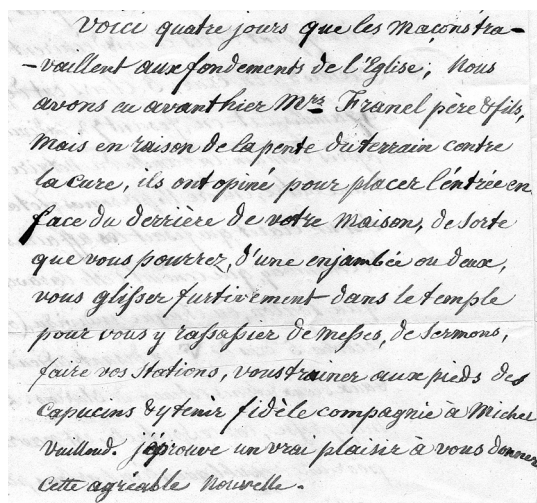 Voici quatre jours que les Maçons tra-
-vaillent aux fondements de l'Eglise; Nous
avons eu avanthier Mrs Franel père & fils,
Mais en raison de la pente du terrain contre
la cure, ils ont opiné pour placer l'éntrée en
face du derrière de votre Maison, de sorte
que vous pourrez, d'une enjambée ou deux,
vous glisser furtivement dans le temple
pour vous y rassasier de Messes, de Sermons,
faire vos stations, vous trainer aux pieds des
Capucins & y tenir fidèle compagnie à Michel
Vuilloud. j'éprouve un vrai plaisir à vous donner
Cette agréable Nouvelle.